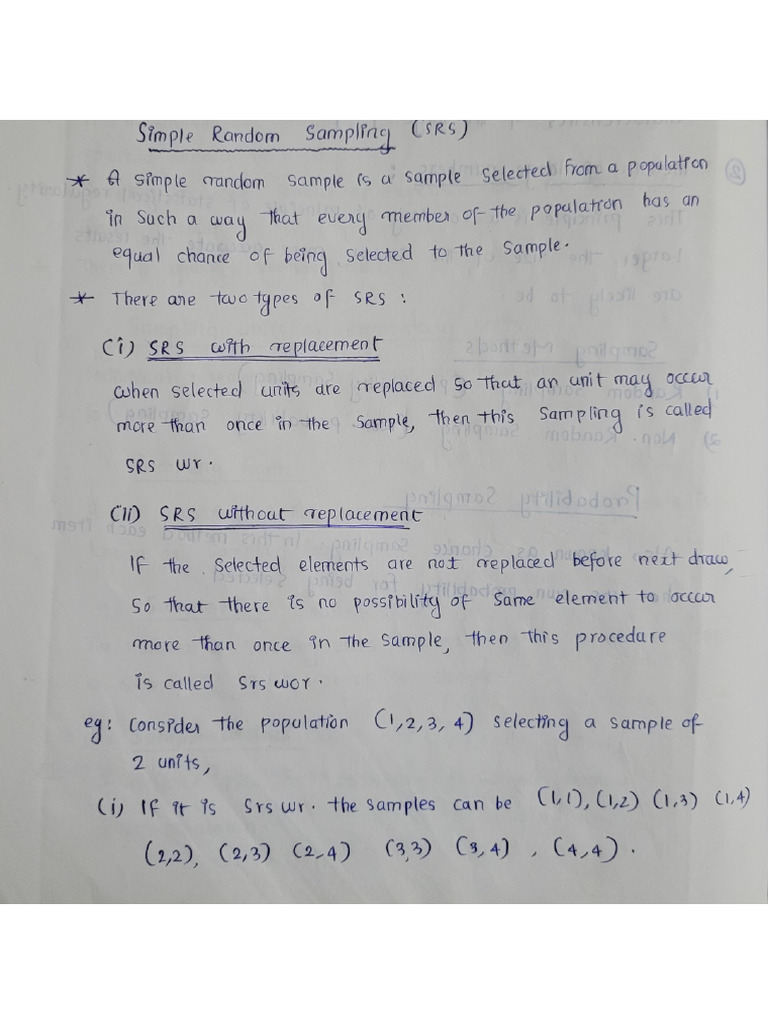 Simple Random Sampling (SRS)
* A simple random sample is a sample selected from a population
in such a way that every member of the population has an
equal chance of being selected to the sample.
* There are two types of SRS :
(i) SRS with replacement
when selected units are replaced so that an unit may occur
more than once in the sample, then this sampling is called
SRS wr.
(ii) SRS without replacement
If the selected elements are not replaced before next draw,
so that there is no possibility of same element to occur
more than once in the sample, then this procedure
is called Srs wor.
eg: Consider the population (1,2,3,4) selecting a sample of
2 units,
(i) If it is Srs wr. the samples can be (1,1), (1,2) (1,3) (1,4)
(2,2), (2,3) (2,4) (3,3) (3,4) , (4,4).